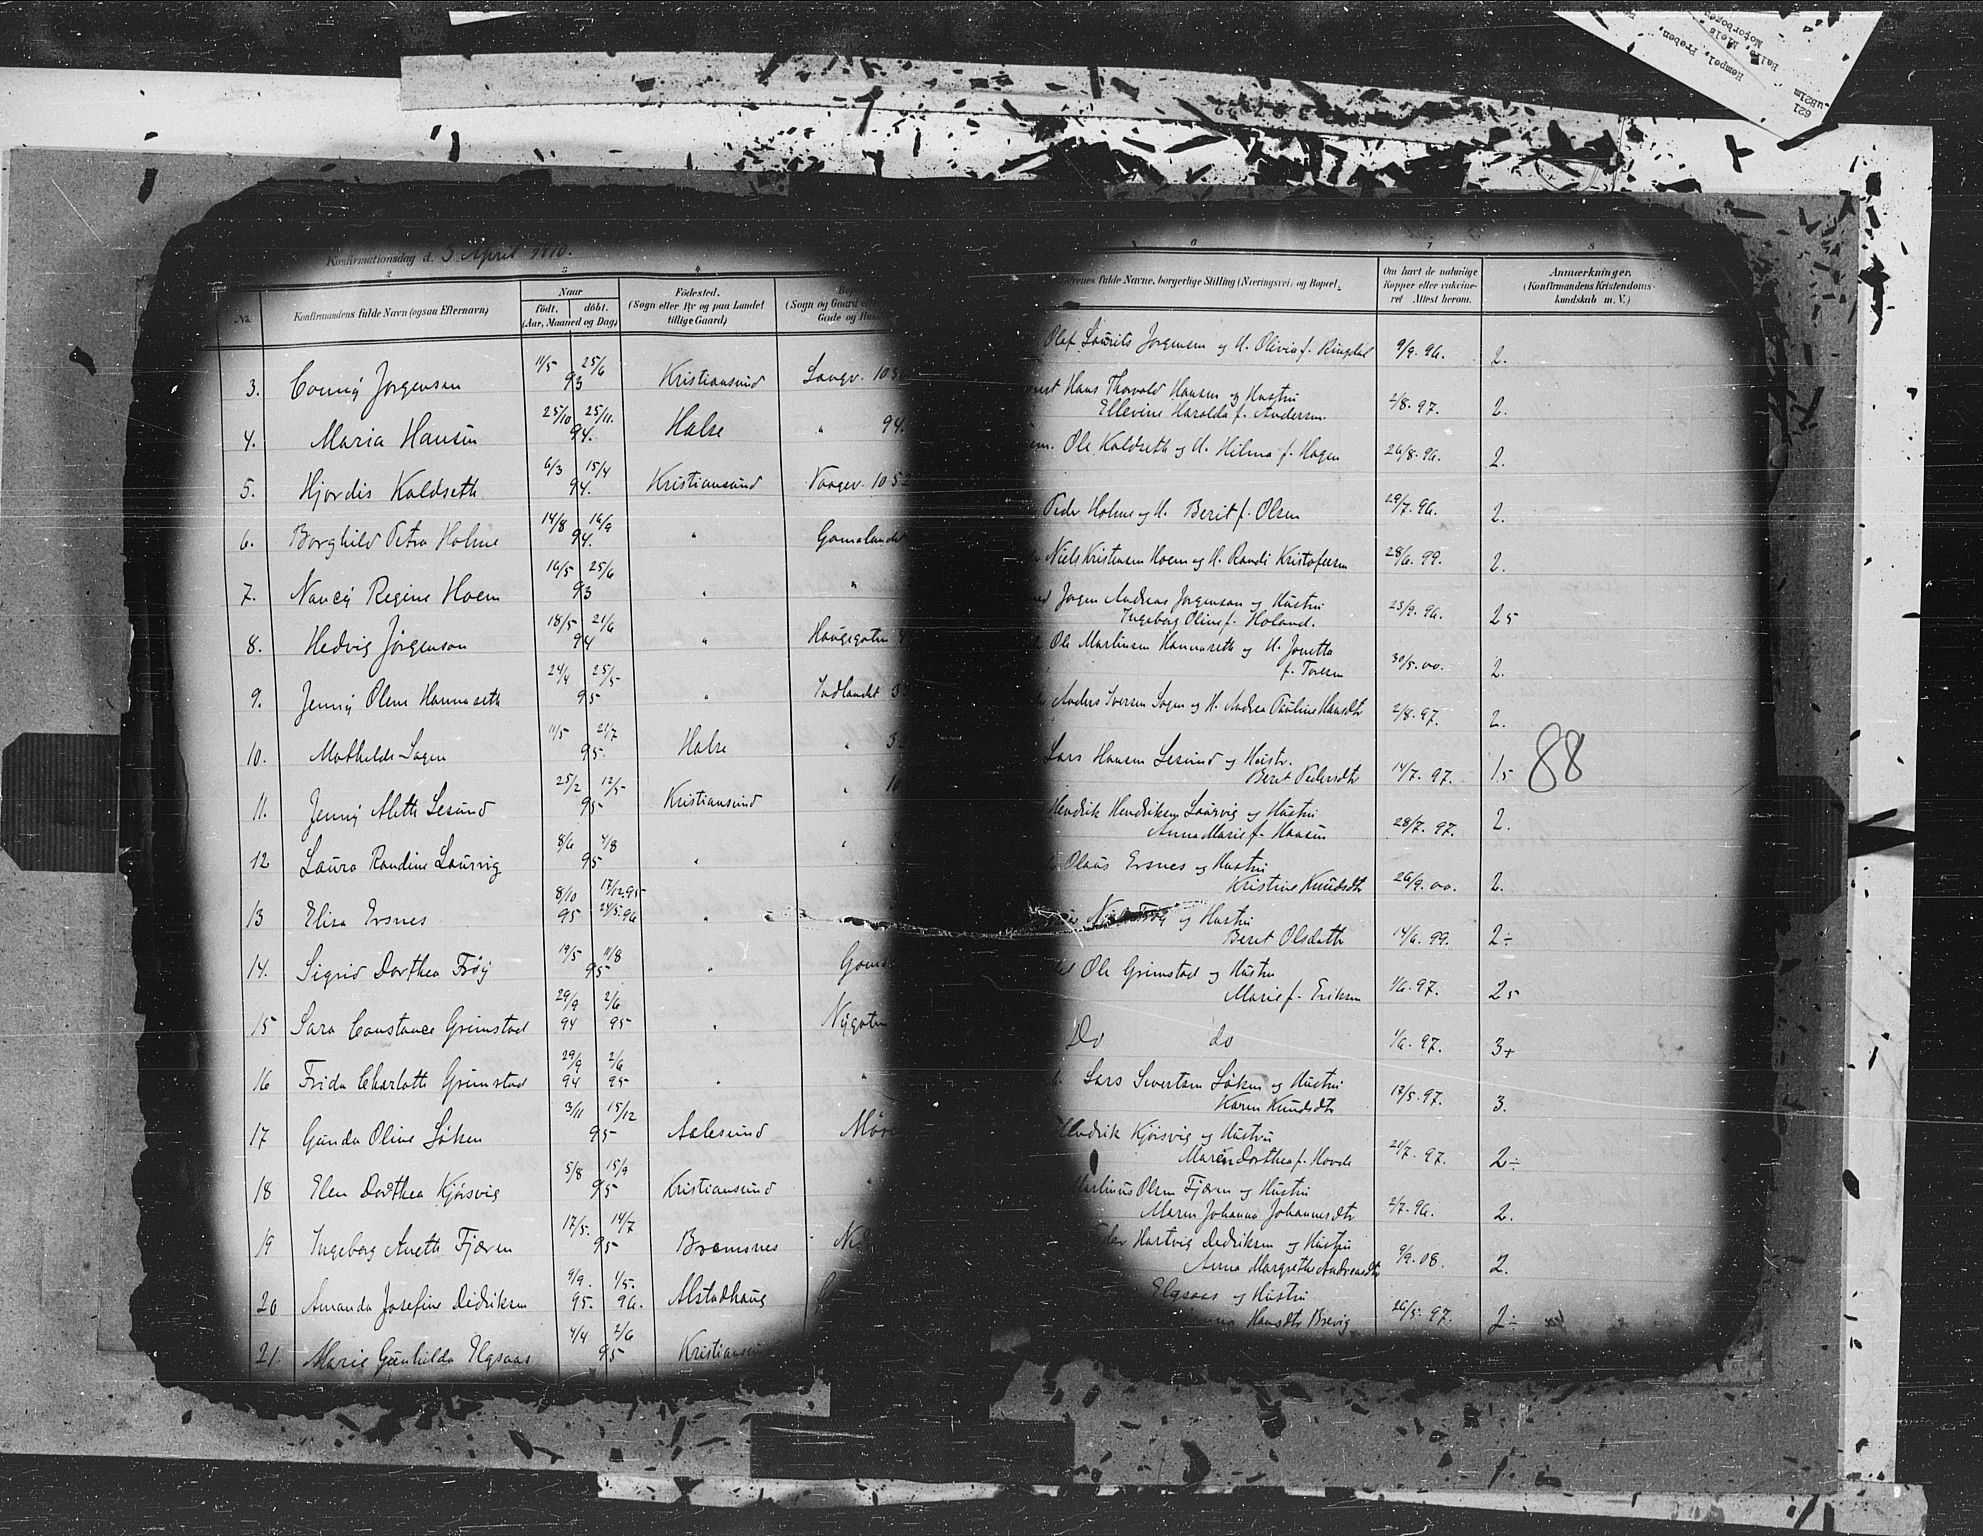 Konfirmationsdag d. 3 April 1910.
2 3 4
No. Konfirmandens fulde Navn (ogsaa Efternavn) Naar født. døbt. (Aar, Maaned og Dag) Fødested. (Sogn eller By og paa Landet tillige Gaard)
6 7 8
fulde Navne, borgerlige Stilling (Næringsvei) og Bopæl. Om havt de naturlige Kopper eller vakcineret Attest herom. Anmærkninger. (Konfirmandens Kristendomskundskab m. V.)
3. Conny Jørgensen 11/5 25/6 93 Kristiansund Langv. 103
Olaf Laurits Jørgensen og H. Olivia f. Ringdal 9/9. 96. 2.
4. Maria Hansen 25/10 25/11. 94. Halse " 94.
Hans Thorvald Hansen og Hustru
Ellevine Haralda f. Andersen 2/8. 97. 2.
5. Hjørdis Koldseth 6/3 15/4 94. Kristiansund Vaagev. 105
Ole Koldseth og H. Hilma f. Hagen 26/8. 96. 2.
6. Borghild Petra Holme 14/8 16/9 94. " Gomalandet
Peder Holme og H. Berit f. Olsen 29/7. 96. 2.
7. Nancy Regine Hoem 16/5 25/6 93 " "
Niels Kristensen Hoem og H. Randi Kristofersen 28/6. 99. 2.
8. Hedvig Jørgensen 18/5 21/6 94 " Haugegaten
Jørgen Andreas Jørgensen og Hustru
Ingeborg Oline f. Holand. 23/9. 96. 25
9. Jenny Oline Hannaseth 24/4 25/5 95 " Indlandet
Ole Martinsen Hannaseth og H. Jonetta
f. Toresen 30/5. 00. 2.
10. Mathilde Sagen 11/5 21/7 95. Halse "
Anders Iversen Sagen og H. Andrea Pauline Hansdtr 2/8. 97. 2.
11. Jenny Aleth Lesund 25/2 12/5 95 Kristiansund "
Lars Hansen Lesund og Hustr.
Beret Pedersdtr 14/7. 97. 15
88
12 Laura Randine Laurvig 8/6 4/8 95 " "
Hendrik Hendriksen Laurvig og Hustru
Anna Marie f. Hansen 28/7. 97. 2.
13 Elisa Ersnes 8/10 95 17/12.95 24/5.96 "
Olaus Ersnes og Hustru
Kristine Knudsdtr 26/9. 00. 2.
14. Sigrid Dorthea Frøy 19/5 11/8 95 "
og Hustru
Beret Olsdatter 14/6. 99. 2÷
15 Sara Constance Grimstad 29/9 94 2/6 95 " Nygaten
Ole Grimstad og Hustru
Marie f. Eriksen 1/6. 97. 25
16 Frida Charlotte Grimstad 29/9 94 2/6 95 " "
Do do 1/6. 97. 3+
17 Gunda Oline Løken 3/11 15/12 95 Aalesund
Lars Sivertsen Løken og Hustru
Karen Knudsdtr 17/5. 97. 3.
18 Elen Dorthea Kjørsvig 5/8 15/9 95 Kristiansund "
Hendrik Kjørsvig og Hustru
Maren Dorthea f. Hovde 21/7. 97. 2÷
19 Ingeborg Aneth Fjæren 17/5. 14/7 95 Bremsnes
Martinus Olsen Fjæren og Hustru
Maren Johanna Johannesdtr 2/7. 96. 2.
20 Amanda Josefine Dedriksen 9/9. 95. 1/5. 96. Alstadhaug
Peder Hartvig Dedriksen og Hustru
Anna Margrethe Andreasdtr 9/9. 08. 2.
21. Marie Gunhilda Elgsaas 4/4 2/6 95 Kristiansund
Elgsaas og Hustru
Hansdtr Brevig 26/5. 97. 2÷
621
Hempel, Preben,
Balle, Niels
Motorbogen